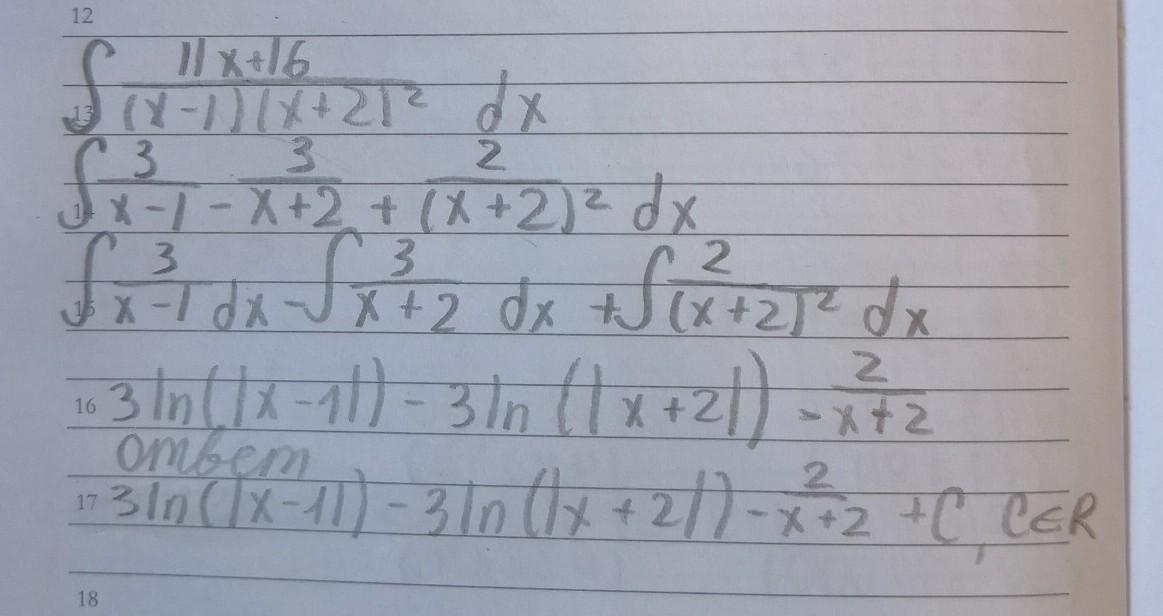 12
∫ (11x+16)/((x-1)(x+2)²) dx
13
∫ 3/(x-1) - 3/(x+2) + 2/(x+2)² dx
14
∫ 3/(x-1) dx - ∫ 3/(x+2) dx + ∫ 2/(x+2)² dx
15
16 3 ln(|x-1|) - 3 ln(|x+2|) - 2/(x+2)
ответ
17 3 ln(|x-1|) - 3 ln(|x+2|) - 2/(x+2) + C, C∈R
18